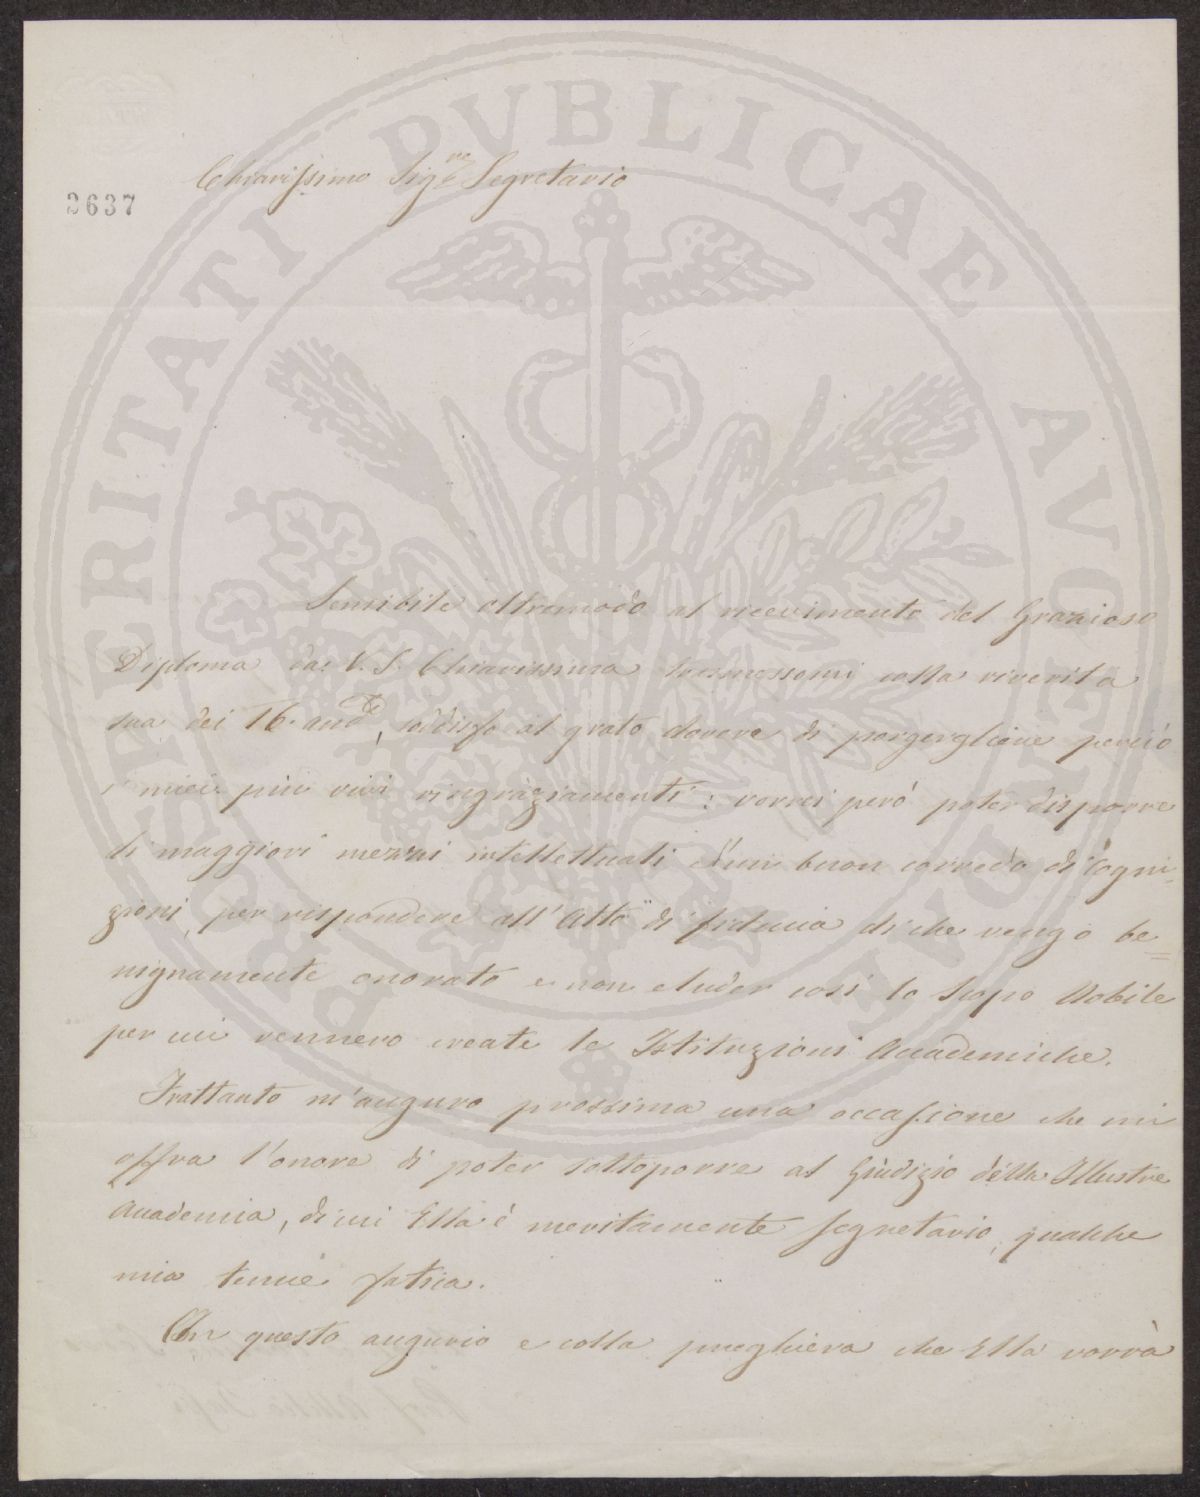 PROSPERITATI PUBLICAE AUGENDAE
Chiarissimo Sig.re Segretario
3637
Sensibile oltremodo al ricevimento del Grazioso
Diploma da V. S. Chiarissima trasmessomi colla riverita
sua dei 16 and.te, soddisfo al grato dovere di porgergliene perciò
i miei più vivi ringraziamenti: vorrei però poter disporre
di maggiori mezzi intellettuali d'un buon corredo di Cogni-
zioni, per rispondere all'Atto di fiducia di che vengo be=
nignamente onorato e non eluder così lo Scopo Nobile
per cui vennero create le Istituzioni Accademiche.
Frattanto m'auguro prossima una occasione che mi
offra l'onore di poter sottoporre al Giudizio della Illustre
Accademia, di cui Ella è meritamente Segretario, qualche
mia tenue fatica.
Con questo augurio e colla preghiera che Ella vorrà